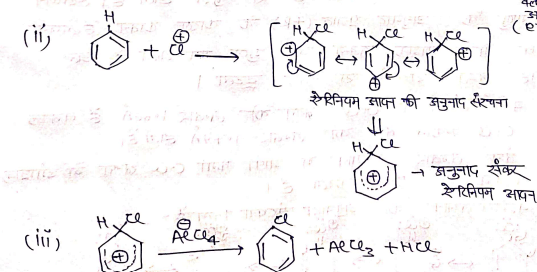 (ii) H + Cl⊕ → [ H Cl ⊕ ↔ H Cl ⊕ ↔ H Cl ⊕ ]
ऐरिनियम आयन की अनुनाद संरचना
⇓
H Cl ⊕ → अनुनाद संकर
ऐरिनियम आयन
(iii) H Cl ⊕ AlCl₄⊖ → Cl + AlCl₃ + HCl